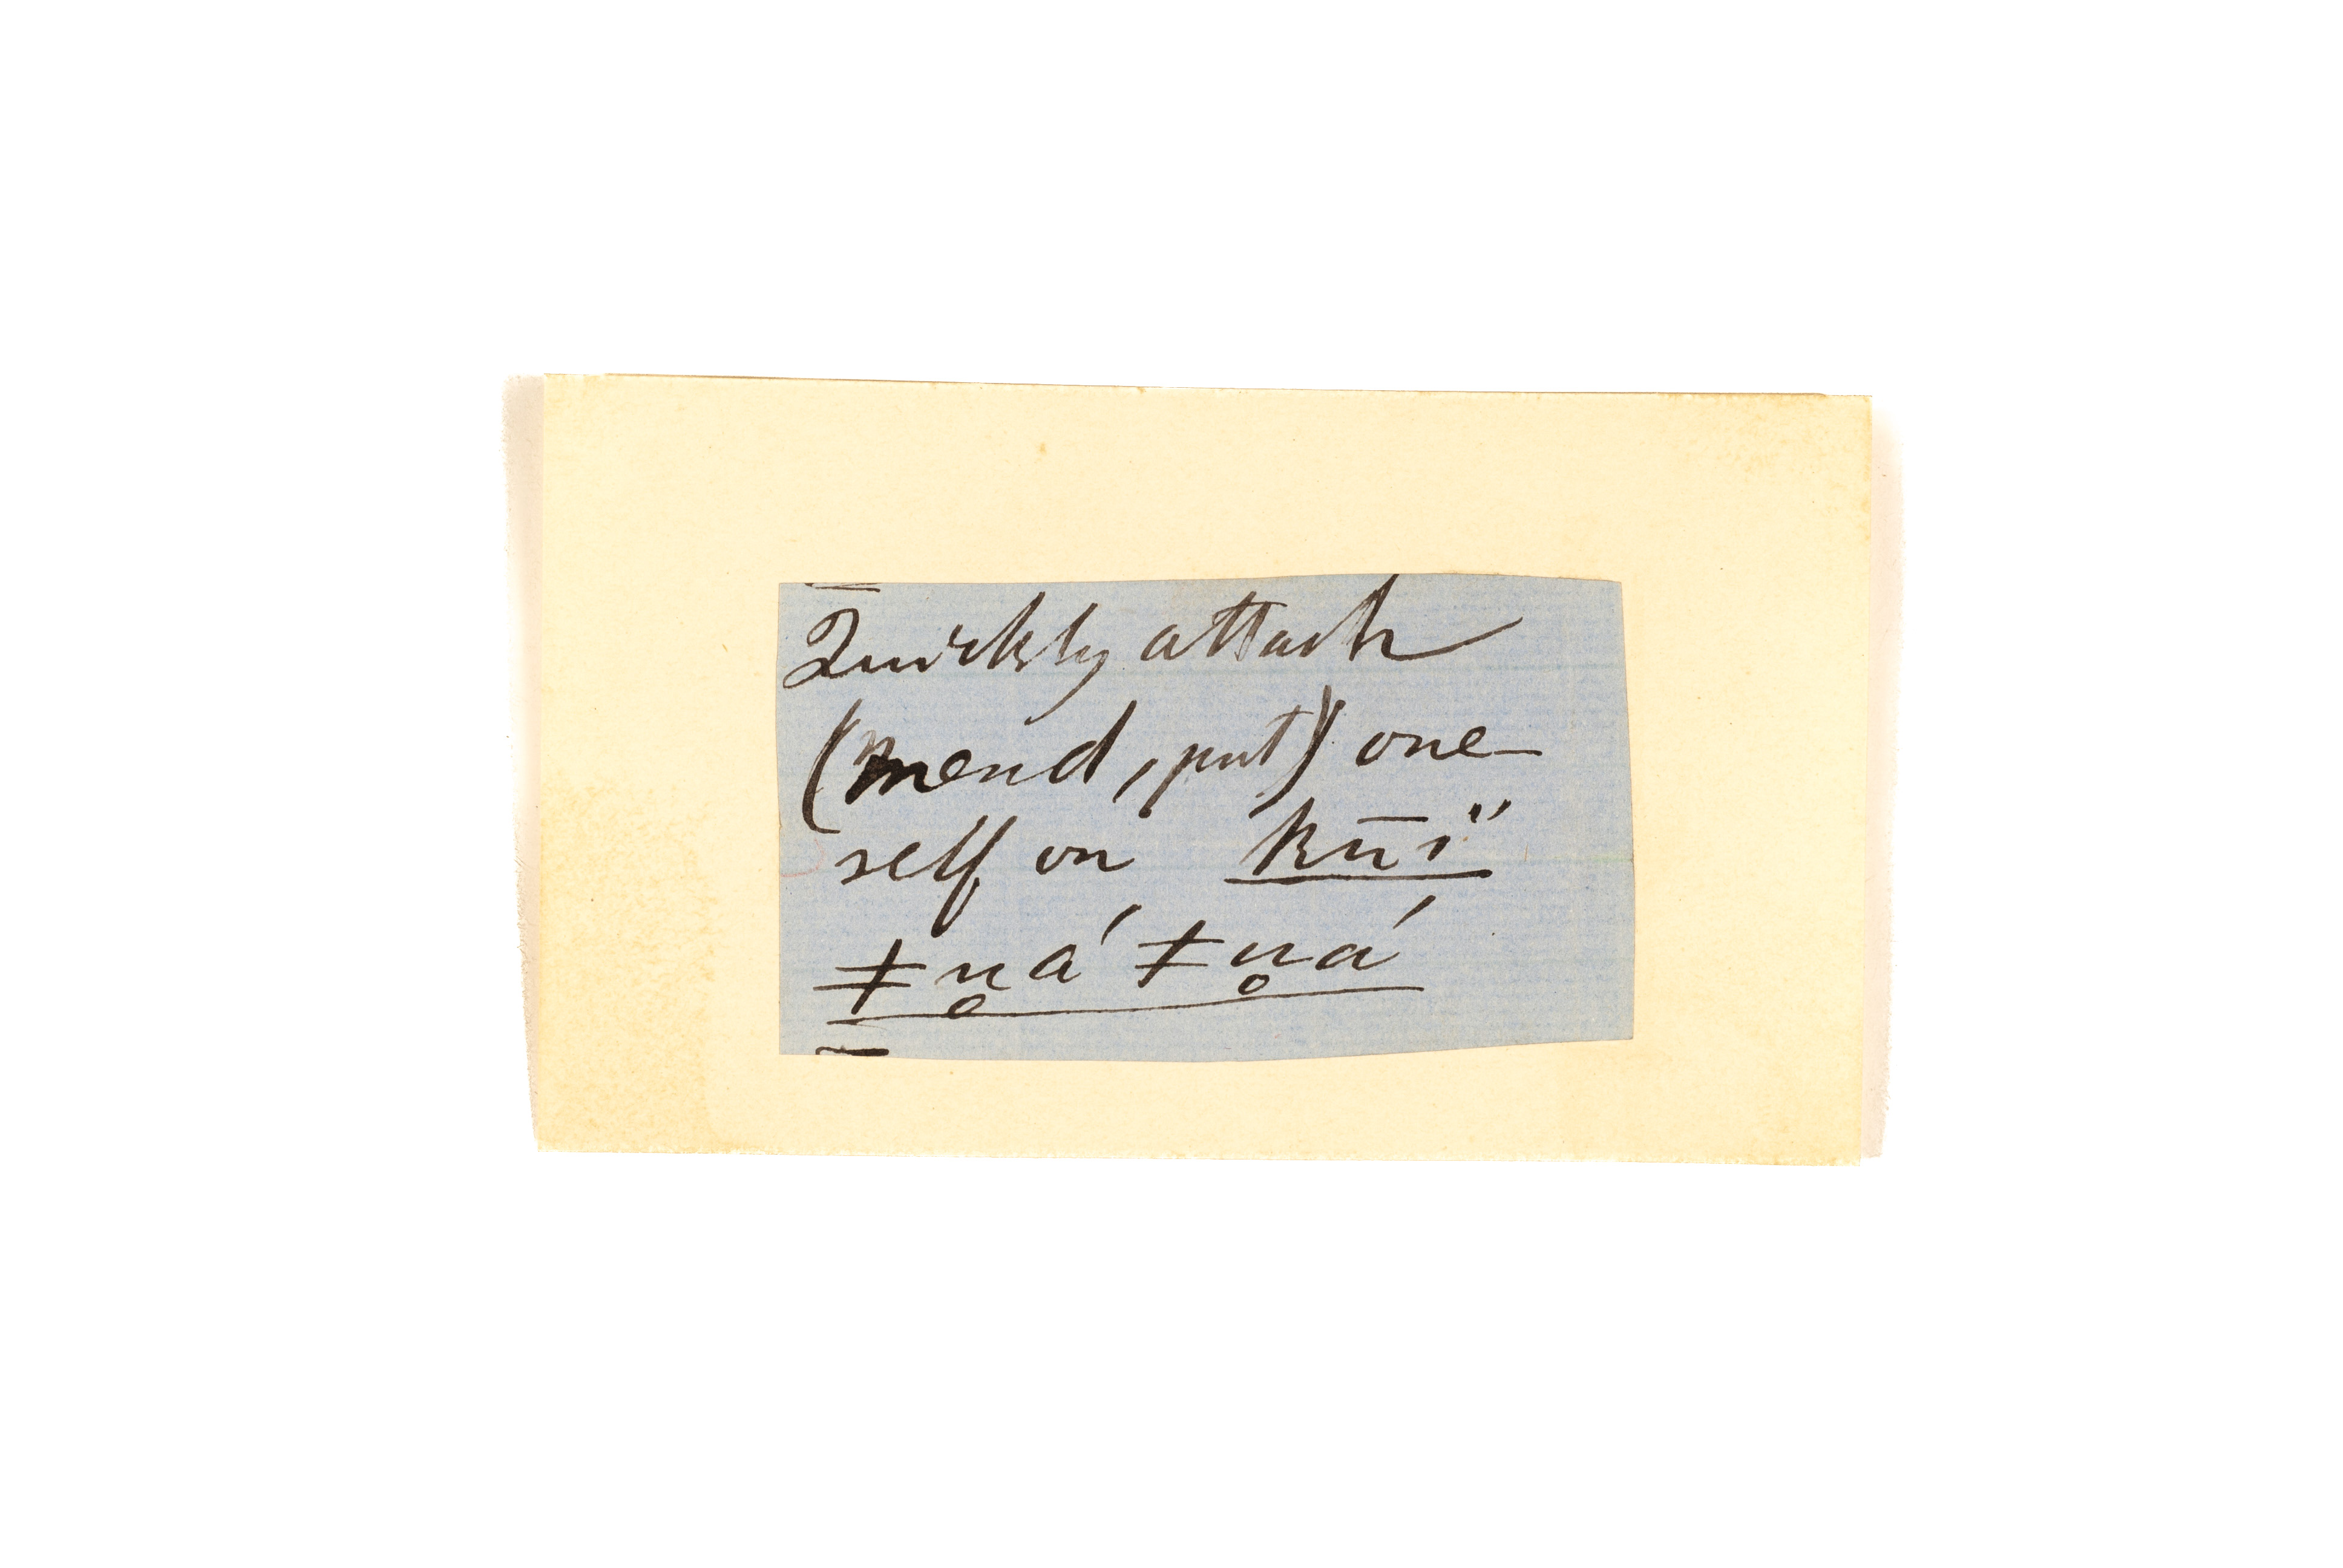 Quickly attach
(mend, put) one-
self on kūï
ǂn̥á ǂn̥á